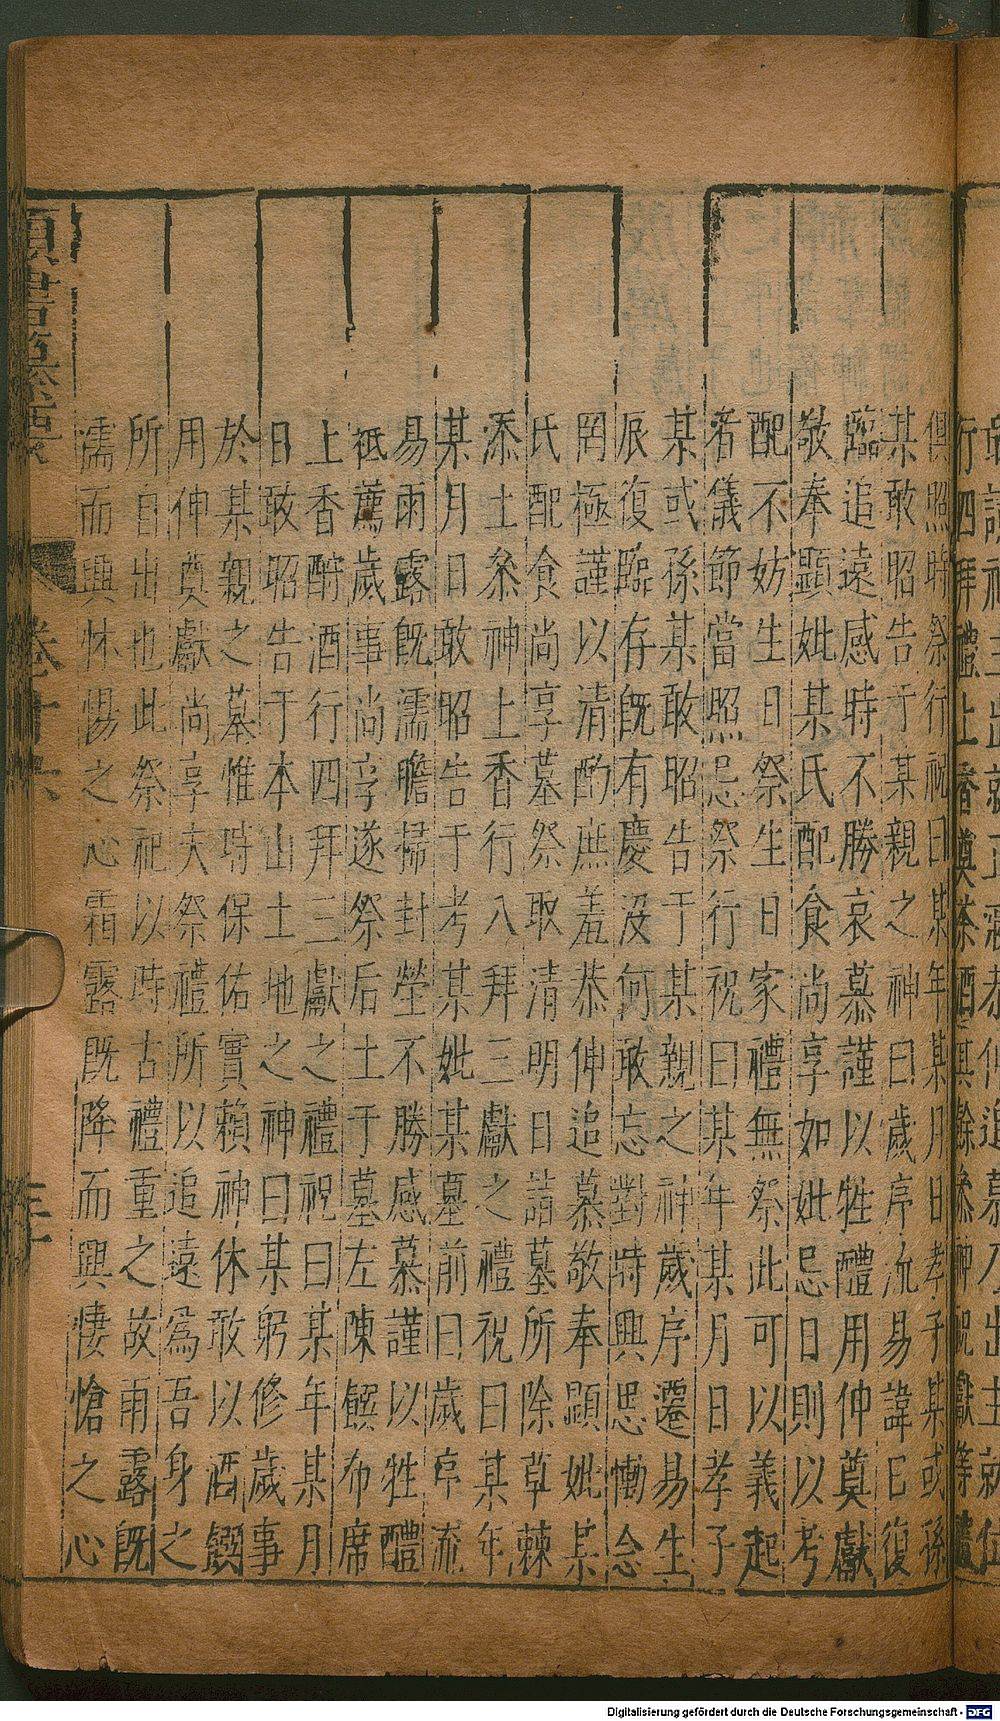 俱照時祭行祝曰某年某月日孝子某或孫
某敢昭告于某親之神曰歲序流易諱日復
臨追遠感時不勝哀慕謹以牲醴用伸奠獻
敬奉顯妣某氏配食尚享如妣忌日則以考
配不妨生日祭生日家禮無祭此可以義起
者儀節當照忌祭行祝曰某年某月日孝子
某或孫某敢昭告于某親之神歲序遷易生
辰復臨存既有慶沒何敢忘對時興思慟念
罔極謹以清酌庶羞恭伸追慕敬奉顯妣某
氏配食尚享墓祭取清明日詣墓所除草棘
添土叅神上香行八拜三獻之禮祝曰某年
某月日敢昭告于考某妣某墓前曰歲序流
易雨露既濡瞻掃封塋不勝感慕謹以牲醴
祗薦歲事尚享遂祭后土于墓左陳饌布席
上香酹酒行四拜三獻之禮祝曰某年某月
日敢昭告于本山土地之神曰某躬修歲事
於某親之墓惟時保佑實賴神休敢以酒饌
用伸奠獻尚享夫祭禮所以追遠爲吾身之
所自出也此祭祀以時古禮重之故雨露既
濡而興怵惕之心霜露既降而興悽愴之心
卷
Digitalisierung gefördert durch die Deutsche Forschungsgemeinschaft - DFG